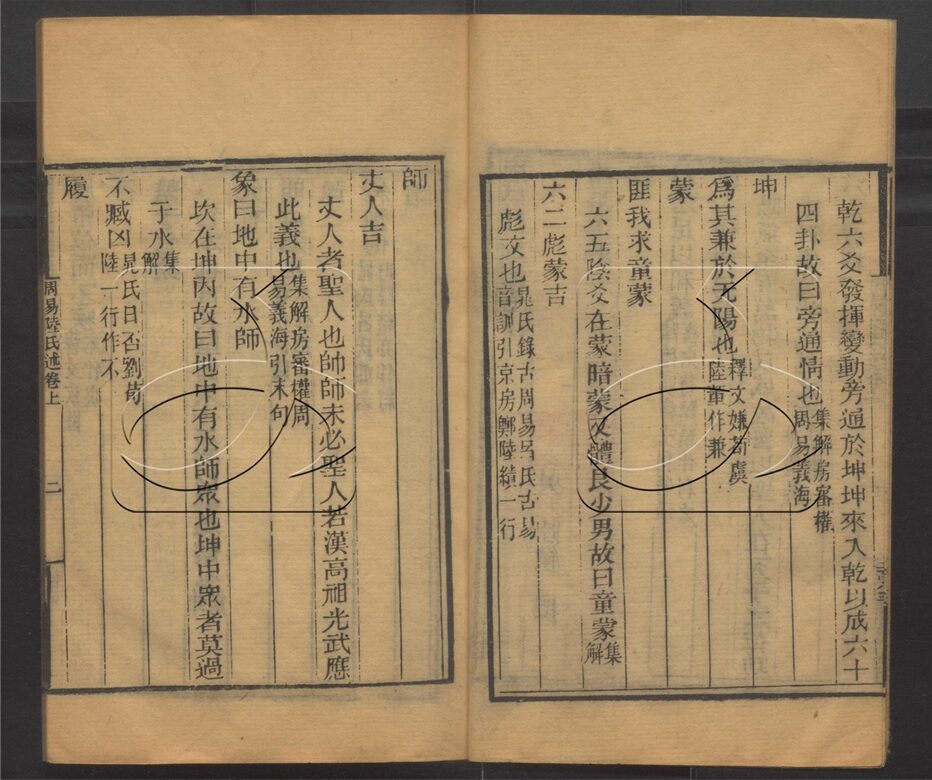 乾六爻發揮變動旁通於坤坤來入乾以成六十
四卦故曰旁通情也集解房審權
周易義海
坤
爲其兼於无陽也釋文嫌荀虞
陸董作兼
蒙
匪我求童蒙
六五陰爻在蒙暗蒙又體艮少男故曰童蒙集
解
六二彪蒙吉
彪文也晁氏錄古周易呂氏古易
音訓引京房鄭陸績一行
師
丈人吉
丈人者聖人也帥師未必聖人若漢高祖光武應
此義也集解房審權周
易義海引末句
象曰地中有水師
坎在坤內故曰地中有水師眾也坤中眾者莫過
于水集
解
不臧凶晁氏曰否劉荀
陸一行作不
履
周易陸氏述卷上
二